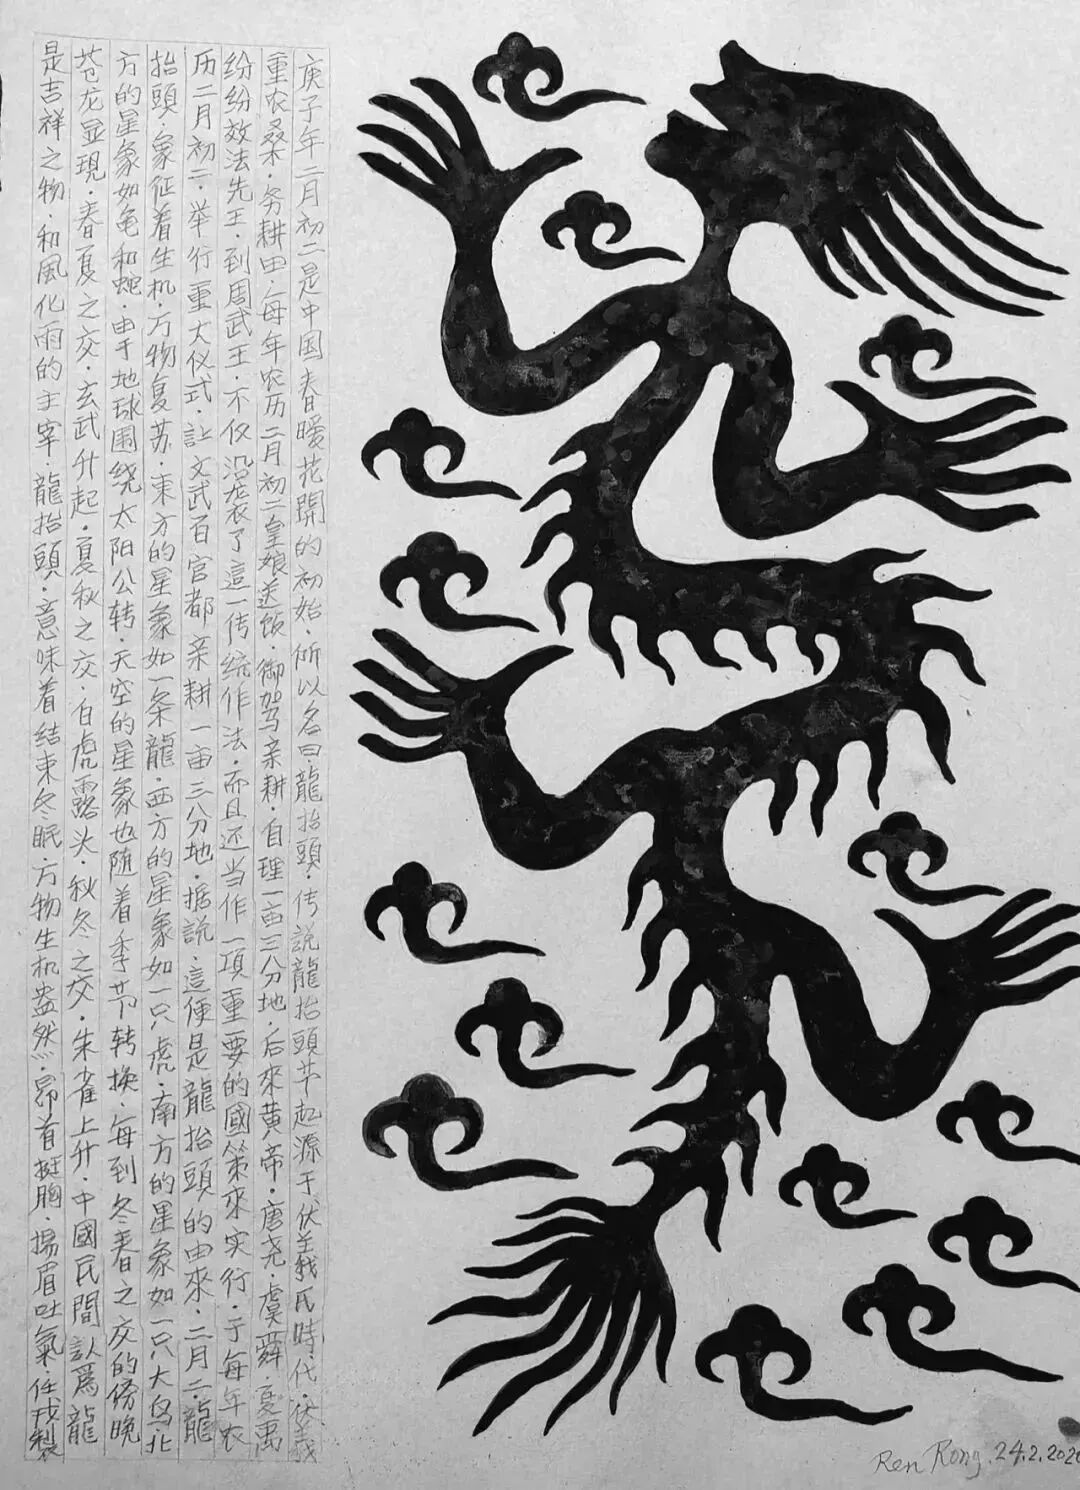 庚子年二月初二是中国春暖花開的初始·所以名曰·龍抬頭·传説龍抬頭节起源于伏羲氏時·代·伏羲
重农桑·务耕田·每年农历二月初二皇娘送饭·御驾亲耕·自理一亩三分地·后來黄帝·唐尧·虞舜·夏禹
纷纷效法先王·到周武王·不仅沿袭了這一传統作法·而且还当作一項重要的國策來实行·于每年农
历二月初二·举行重大仪式·让文武百官都亲耕一亩三分地·据説·這便是龍抬頭的由來·二月二·龍
抬頭·象征着生机·万物复苏·東方的星象如一条龍·西方的星象如一只虎·南方的星象如一只大鸟·北
方的星象如龟和蛇·由于地球围绕太阳公转·天空的星象也随着季节转换·每到冬春之交的傍晚
苍龙显現·春夏之交·玄武升起·夏秋之交·白虎露头·秋冬之交·朱雀上升·中國民間认爲龍
是吉祥之物·和風化雨的主宰·龍抬頭·意味着结束冬眠·万物生机盎然·昂首挺胸·揚眉吐氣·任戎製
Ren Rong. 24.2.2020